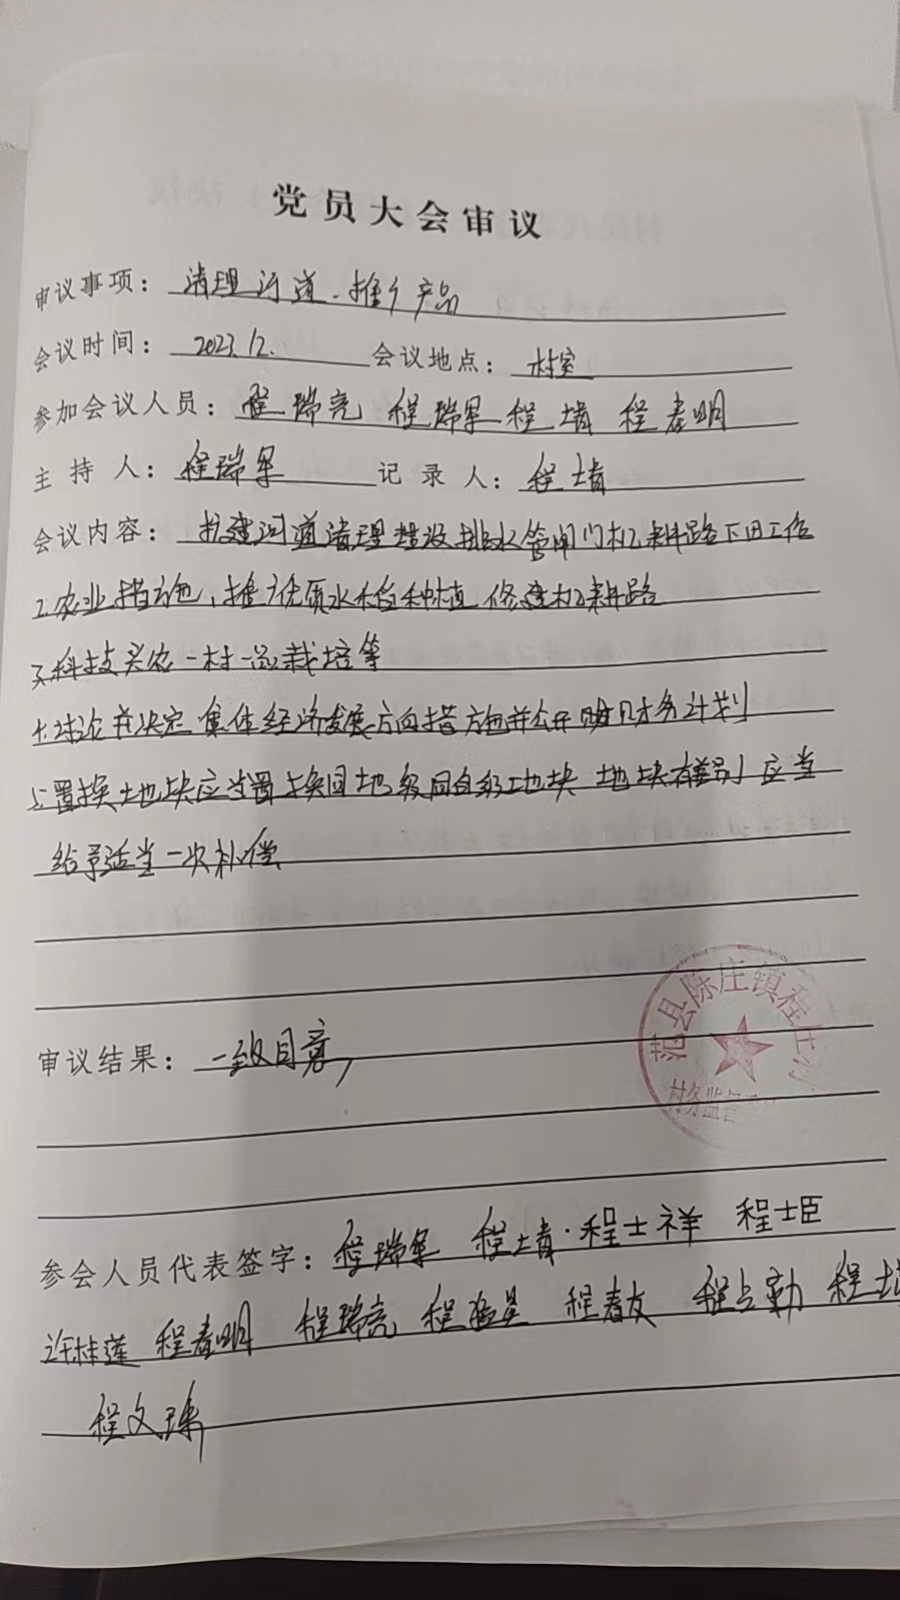 党员大会审议
审议事项：清理河道、推广产品
会议时间：2023.12. 会议地点：村室
参加会议人员：程瑞亮 程瑞军 程士靖 程春明
主持人：程瑞军 记录人：程士靖
会议内容：扩建河道清理 排水管闸门机耕路下田工作
2.农业措施，推广优质水稻种植 修建机耕路
3.科技兴农一村一品栽培等
4.讨论并决定 集体经济发展方向措施并公开 财务计划
5.置换土地块应当置换同地级同自然地块 地块有差别 应当
给予适当一次补偿
审议结果：一致同意
范县陈庄镇程庄村
村务监督
参会人员代表签字：程瑞军 程士靖·程士祥 程士臣
许桂莲 程春明 程瑞亮 程 程春友 程 勤 程士
程文